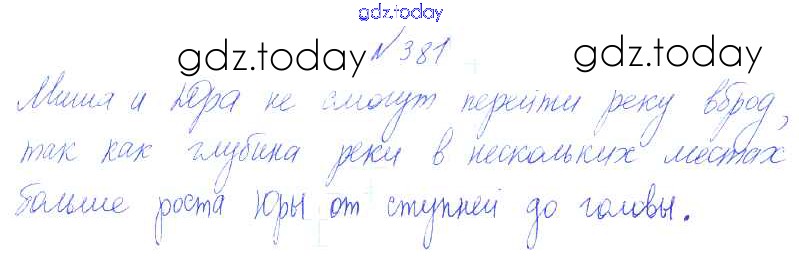 gdz.today
gdz.today №381 gdz.today
Миша и Юра не смогут перейти реку вброд,
так как глубина реки в нескольких местах
больше роста Юры от ступней до головы.